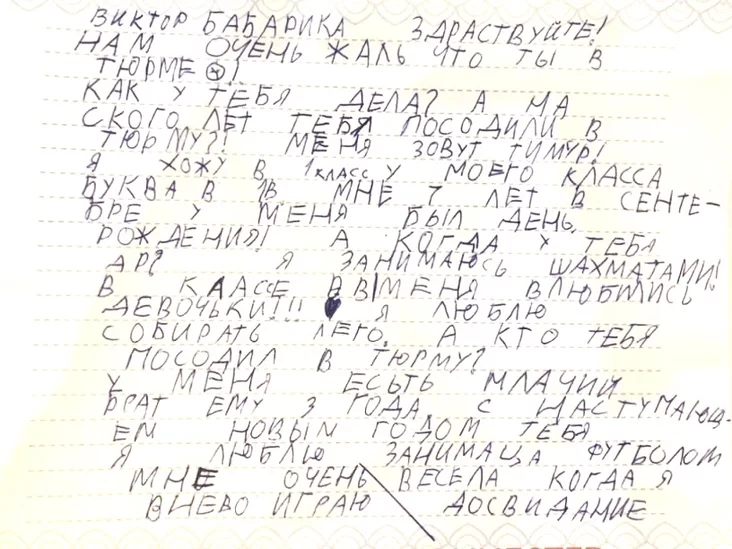 ВИКТОР БАБАРИКА ЗДРАСТВУЙТЕ!
НАМ ОЧЕНЬ ЖАЛЬ ЧТО ТЫ В
ТЮРМЕ ☹!
КАК У ТЕБЯ ДЕЛА? А НА
СКОГО ЛЕТ ТЕБЯ ПОСОДИЛИ В
ТЮРМУ?! МЕНЯ ЗОВУТ ТИМУР!
Я ХОЖУ В 1 КЛАСС У МОЕГО КЛАССА
БУКВА В 1В МНЕ 7 ЛЕТ В СЕНТЕ-
БРЕ У МЕНЯ БЫЛ ДЕНЬ
РОЖДЕНИЯ! А КОГДА У ТЕБА
ДР? Я ЗАНИМАЮСЬ ШАХМАТАМИ!
В КЛАССЕ В МЕНЯ ВЛЮБИЛИСЬ
ДЕВОЧЬКИ!!! Я ЛЮБЛЮ
СОБИРАТЬ ЛЕГО. А КТО ТЕБЯ
ПОСОДИЛ В ТЮРМУ?
У МЕНЯ ЕСЬТЬ МЛАЧИЙ
БРАТ ЕМУ 3 ГОДА. С НАСТУПАЮЩ-
ЕМ НОВЫМ ГОДОМ ТЕБЯ
Я ЛЮБЛЮ ЗАНИМАЦА ФУТБОЛОМ
МНЕ ОЧЕНЬ ВЕСЕЛА КОГДА Я
ВНЕВО ИГРАЮ ДОСВИДАНИЕ